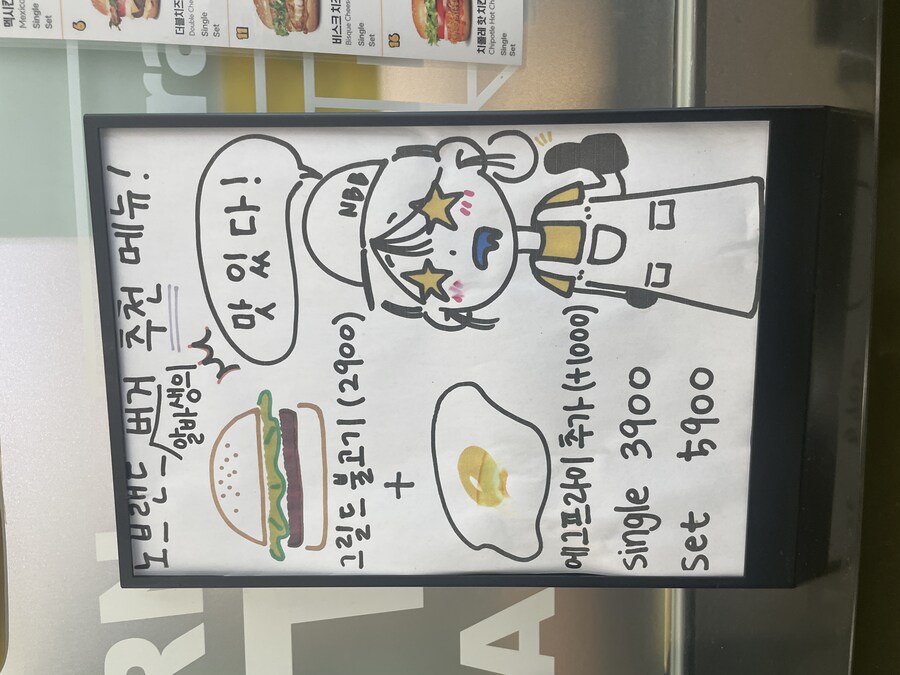 노브랜드 버거 추천 메뉴!
알바생의
맛있다!
NBB
그릴드 불고기 (2900)
+
에그프라이 추가 (+1000)
single 3900
set 5900
RN
A
ra
멕시칸
Mexica
Single
Set
6
더블치즈
Double Che
Single
Set
11
비스크 치즈
Bisque Chees
Single
Set
16
치폴레 핫 치킨
Chipotle Hot Ch
Single
Set